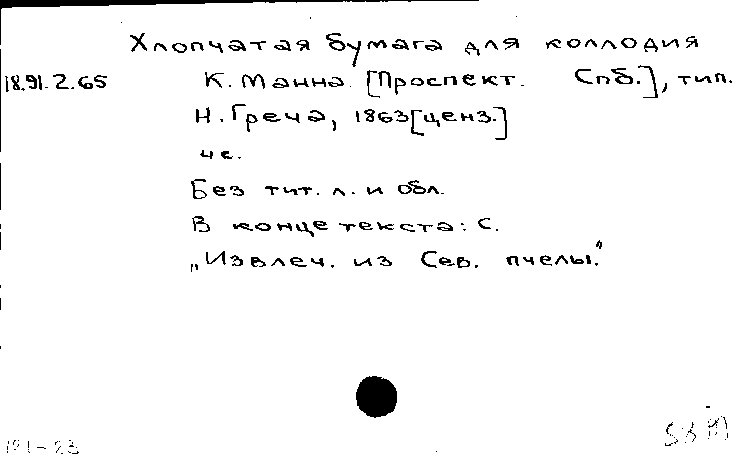 Хлопчатая бумага для коллодия
18.91.2.65 К. Манна [Проспект. Спб.], тип.
Н. Греча, 1863 [ценз.]
4 с.
Без тит. л. и обл.
В конце текста: С.
„Извлеч. из Сев. пчелы."